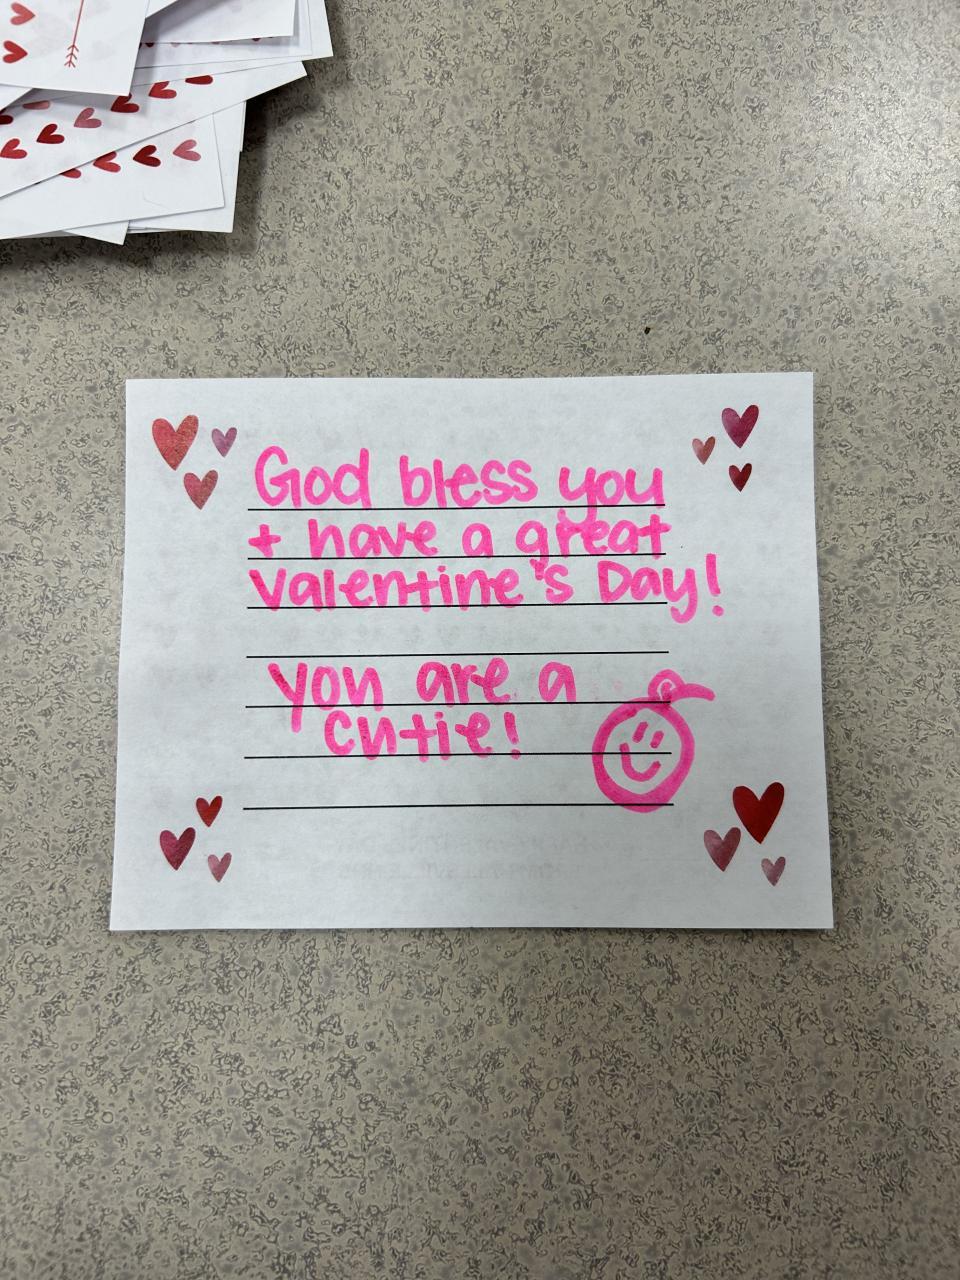 God bless you
+ have a great
Valentine's Day!
you are a
cutie!